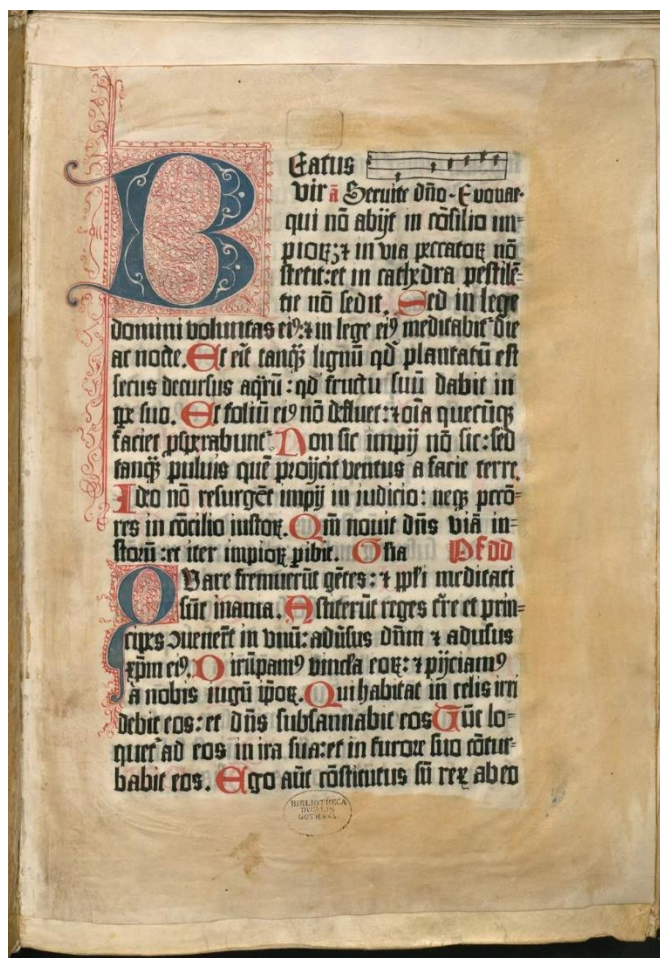 Beatus
vir ā Seruite dn̄o · Euouae·
qui nō abijt in cōsilio im=
pioꝝ: ⁊ in via pccatoꝝ nō
stetit: et in cathedra pestilē=
tie nō sedit. Sed in lege
domini voluntas eiꝰ: ⁊ in lege eiꝰ meditabit᷑ die
ac nocte. Et erit tanqꝫ lignū qd̄ plantatū est
secus decursus aqꝝ̄: qd̄ fructū suū dabit in
tp̄e suo. Et foliū eiꝰ nō defluet: ⁊ oīa quecūqꝫ
faciet ꝓsperabunt᷑. Non sic impij nō sic: sed
tanqꝫ puluis quē proijcit ventus a facie terre.
Ideo nō resurgēt impij in iudicio: neqꝫ pccō=
res in cōcilio iustoꝝ. Qm̄ nouit dn̄s viā iu=
storū: et iter impioꝝ ꝑibit. Glīa Ps̄ dd
Quare fremuerūt gētes: ⁊ ppl̄i meditati
sūt inania. Astiterūt reges tr̄e et prin=
cipes ↄuenerūt in vnū: aduersus dn̄m ⁊ aduersus
xp̄m eiꝰ. Dirūpamꝰ vincl̄a eoꝝ: ⁊ ꝓijciamꝰ
a nobis iugū ip̄oꝝ. Qui habitat in celis irri
debit eos: et dn̄s subsannabit eos. Tūc lo=
quet᷑ ad eos in ira sua: et in furore suo cōtur=
babit eos. Ego aūt cōstitutus sū rex ab eo
BIBLIOTHECA
DUCALIS
GOTHANA.